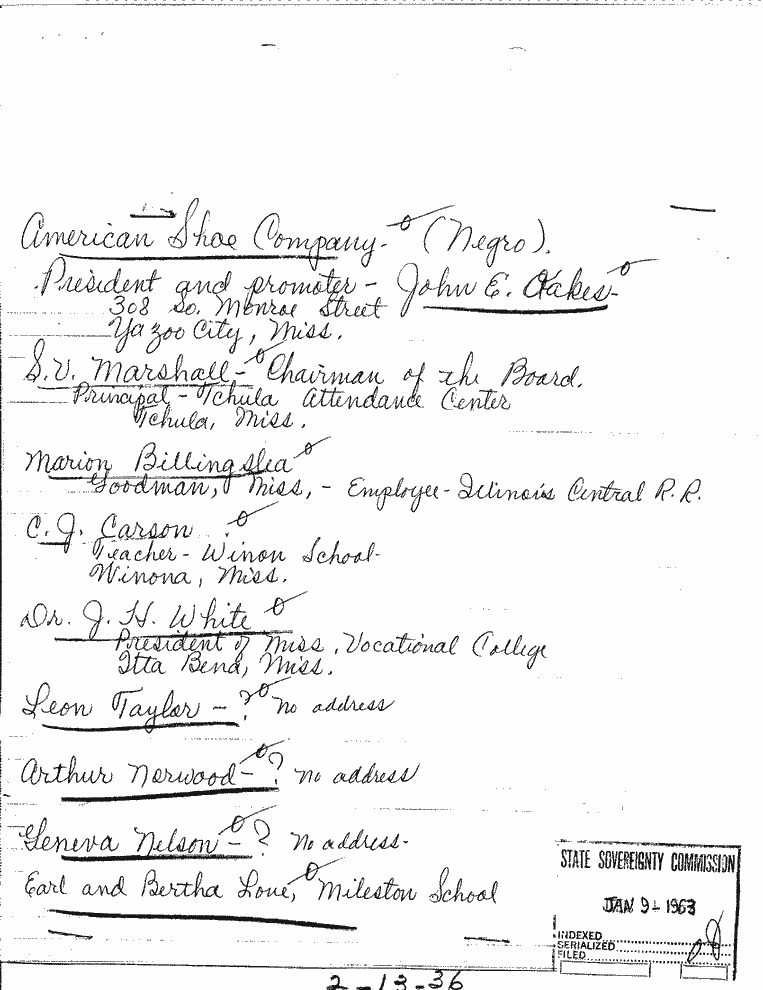 American Shoe Company- (Negro).
President and promoter - John E. Oakes-
308 So. Monroe Street
Yazoo City, Miss.
S.V. Marshall - Chairman of the Board.
Principal - Tchula Attendance Center
Tchula, Miss.
Marion Billingslea
Goodman, Miss, - Employee - Illinois Central R.R.
C.J. Carson
Teacher - Winon School-
Winona, Miss.
Dr. J. H. White
President of Miss. Vocational College
Itta Bena, Miss.
Leon Taylor - ? no address
Arthur Norwood - ? no address
Geneva Nelson - ? No address-
Earl and Bertha Love, Mileston School
STATE SOVEREIGNTY COMMISSION
JAN 9 - 1963
INDEXED
SERIALIZED
FILED
2-13-36